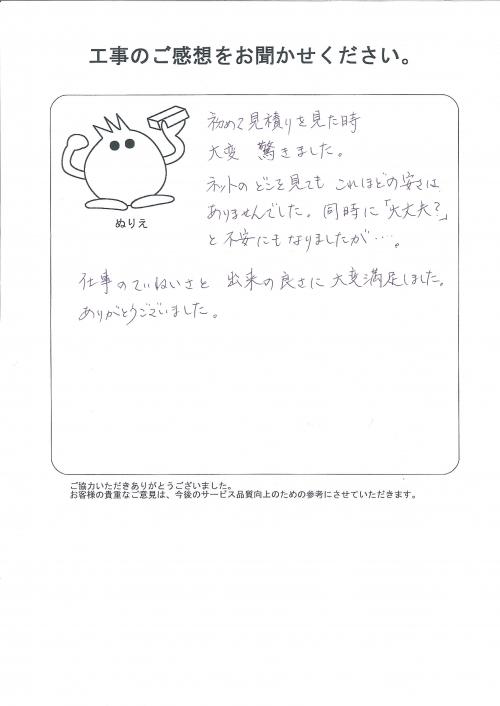 工事のご感想をお聞かせください。
初めて見積りを見た時
大変 驚きました。
ネットのどこを見ても これほどの安さは
ありませんでした。同時に「大丈夫?」
と不安にもなりましたが‥‥。
ぬりえ
仕事のていねいさと 出来の良さに 大変満足しました。
ありがとうございました。
ご協力いただきありがとうございました。
お客様の貴重なご意見は、今後のサービス品質向上のための参考にさせていただきます。